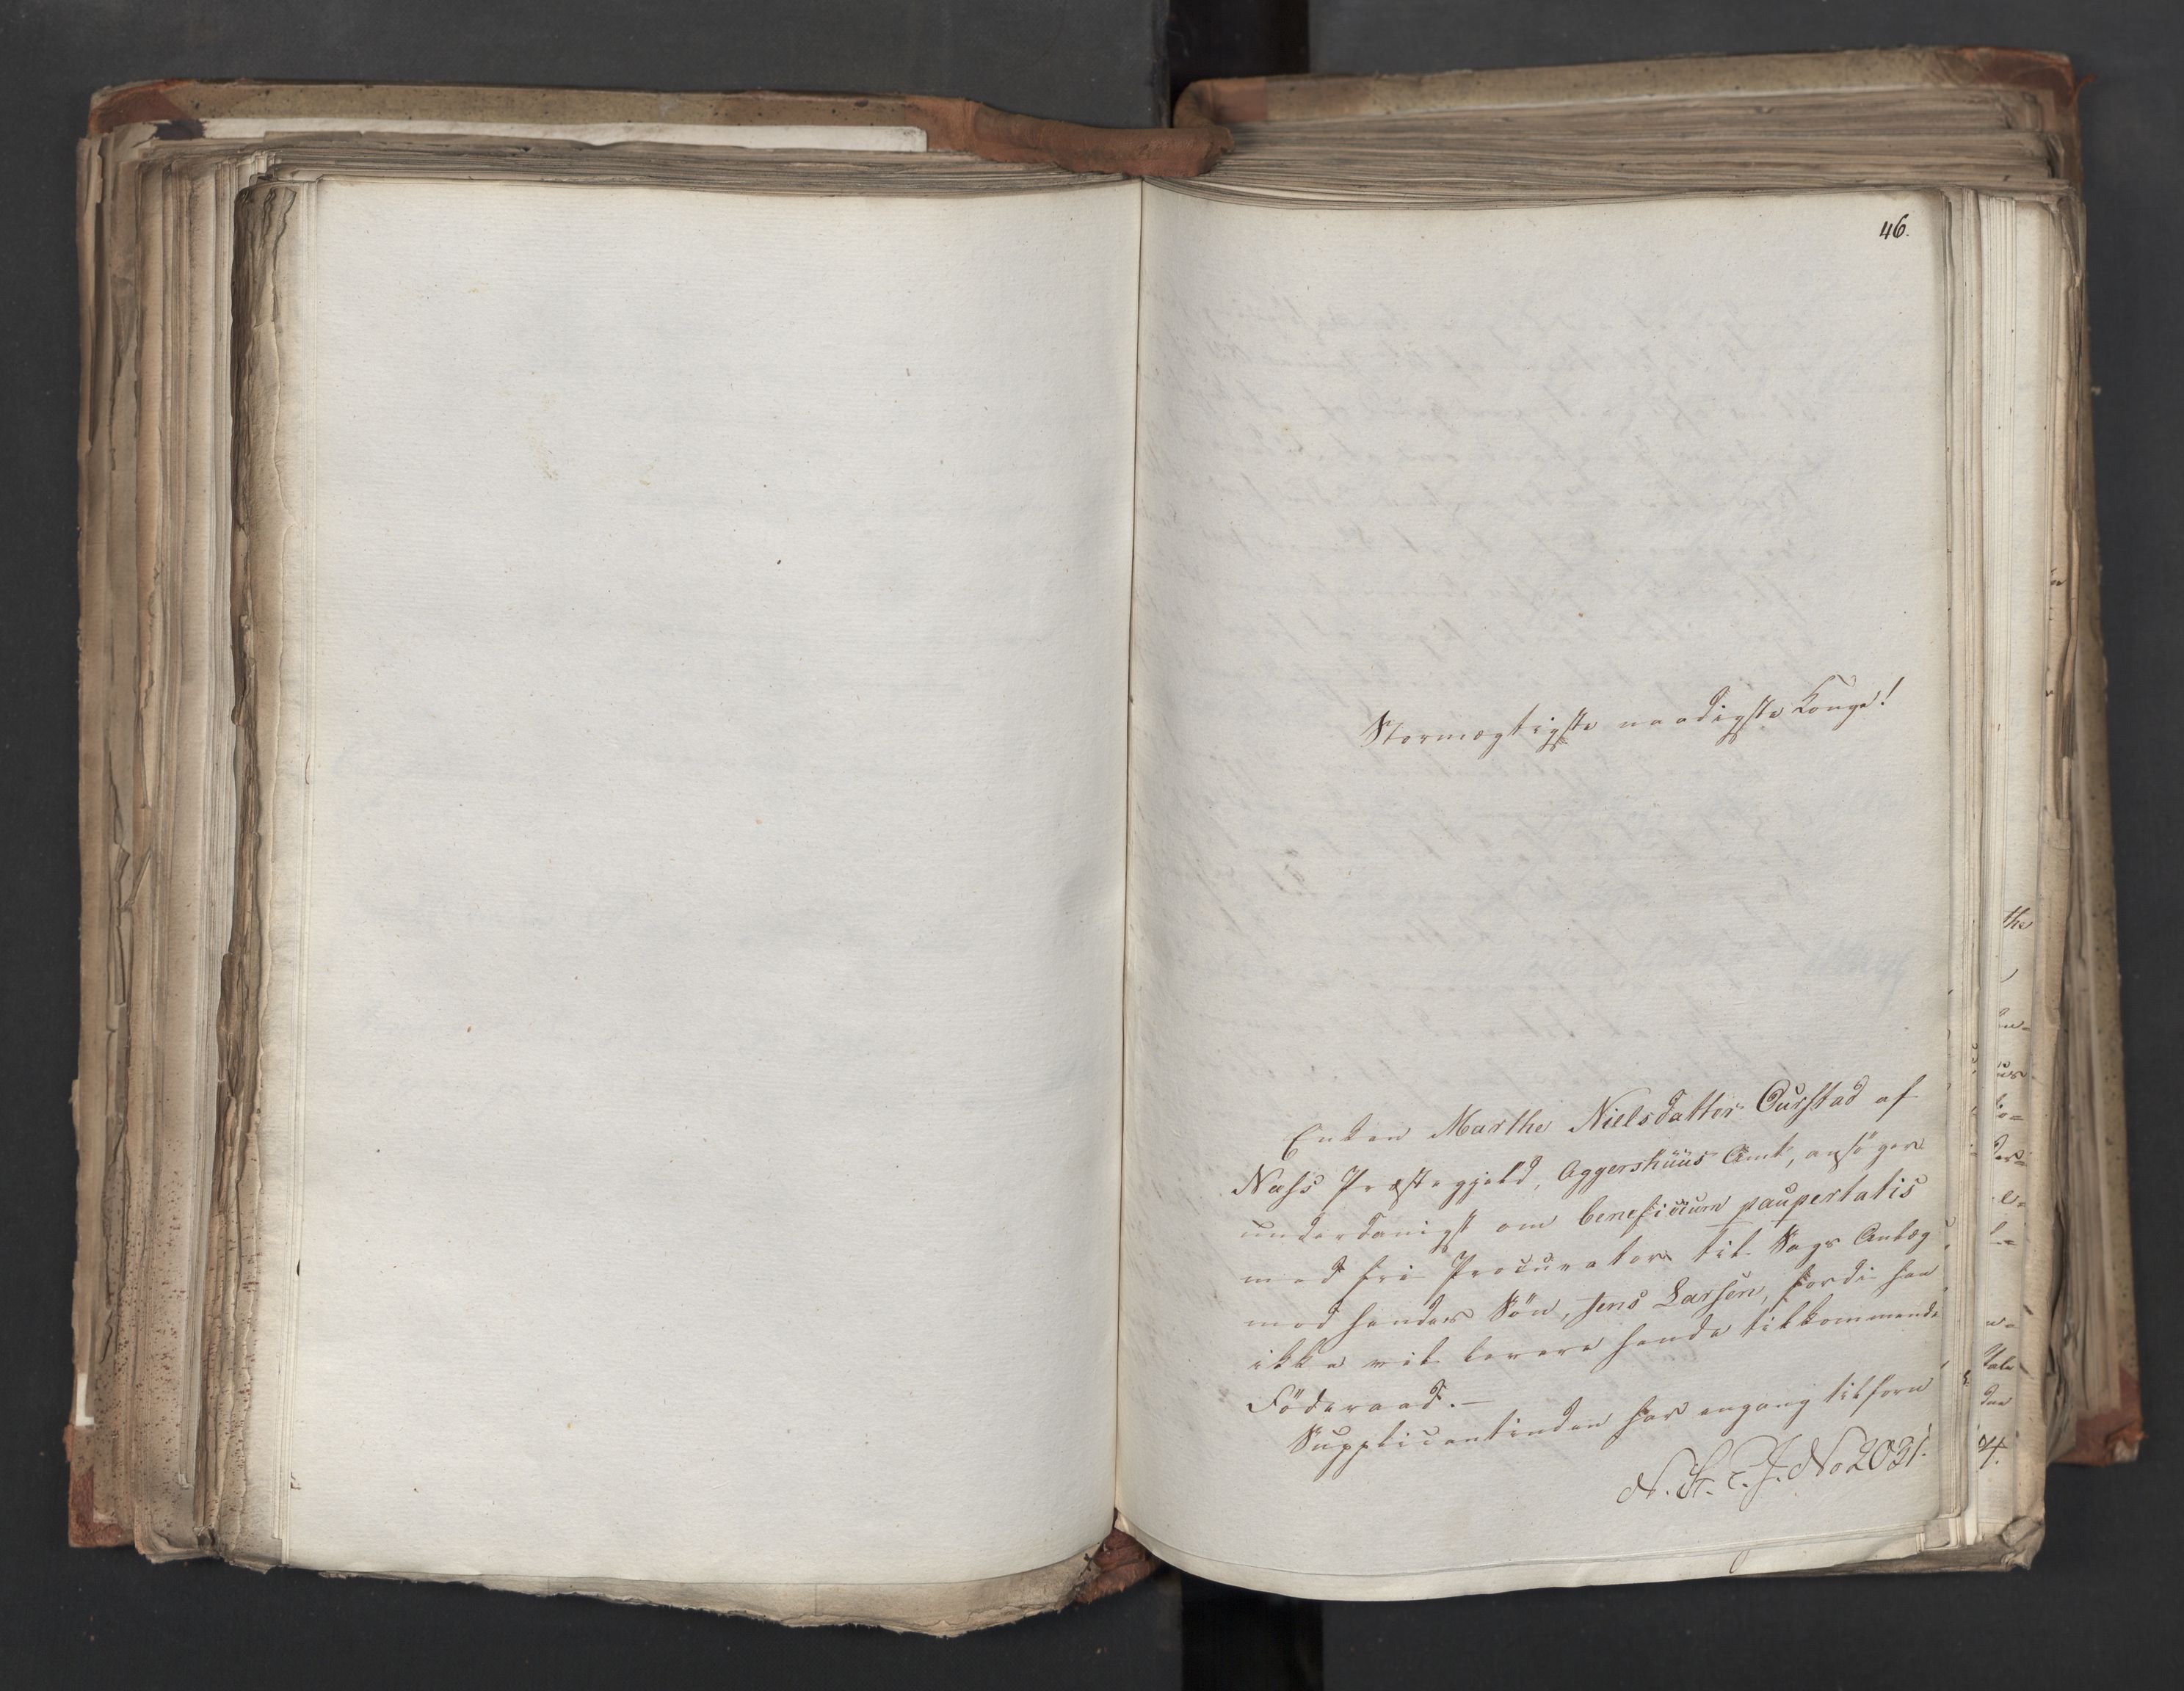 46.
Stormægtigste naadigste Konge!
Enken Marthe Nielsdatter Ourstad af
Næss Præstegjeld, Aggershuus Amt, ansöger
underdanigst om beneficium paupertatis
med fri Procurator til Sags Anlæg
mod hendes Sön, Jens Larsen, fordi han
ikke vil levere hende tilkommende
Föderaad.—
Supplicantinden har engang tilforn
No 2031.
the
4.